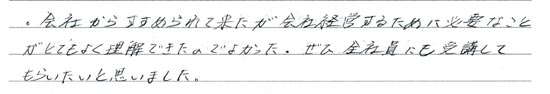 。会社からすすめられて来たが会社経営するために必要なこと
がとてもよく理解できたのでよかった。ぜひ全社員にも受講して
もらいたいと思いました。